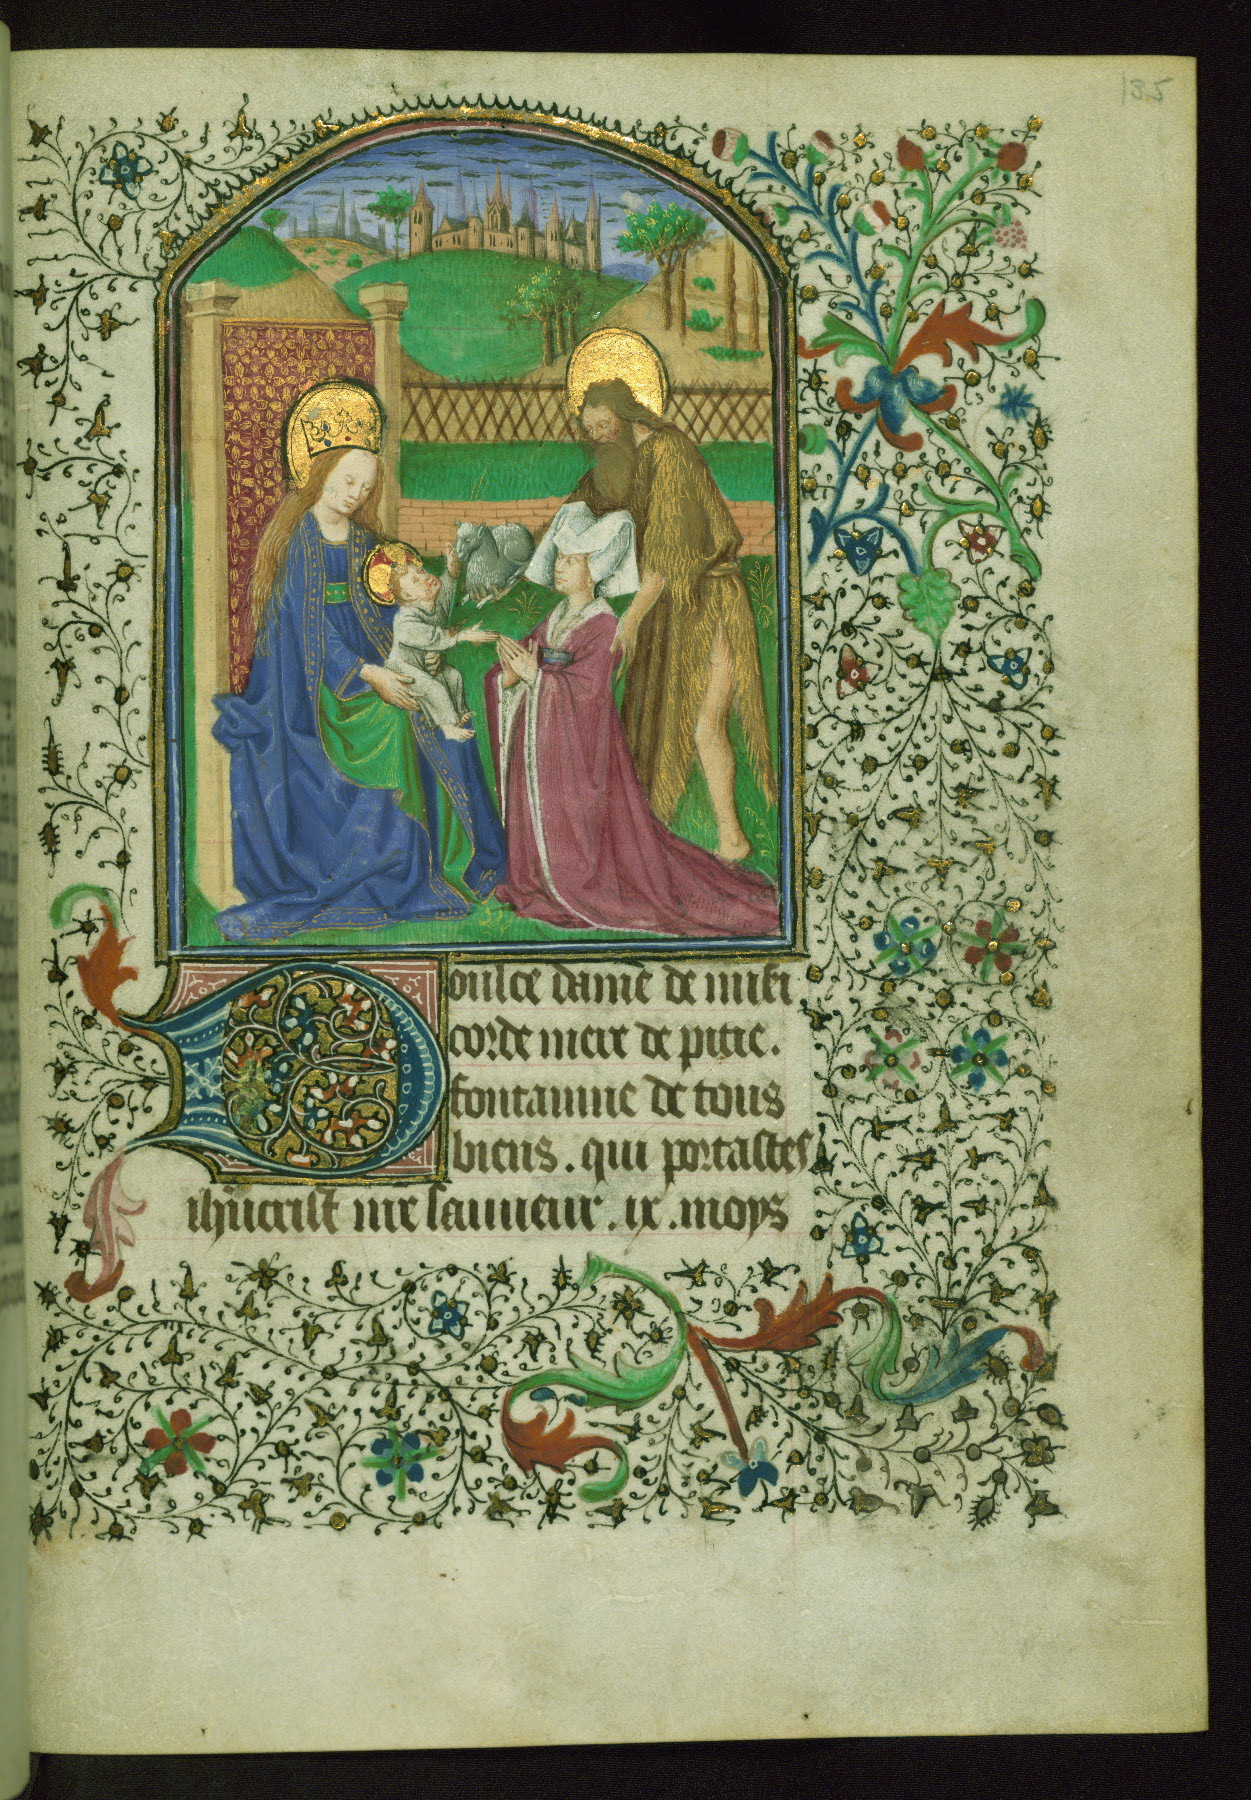 135
Doulce dame de misi
corde mere de pitie.
fontainne de tous
biens. qui portastes
ihũcrist nre sauueur. ix. moys